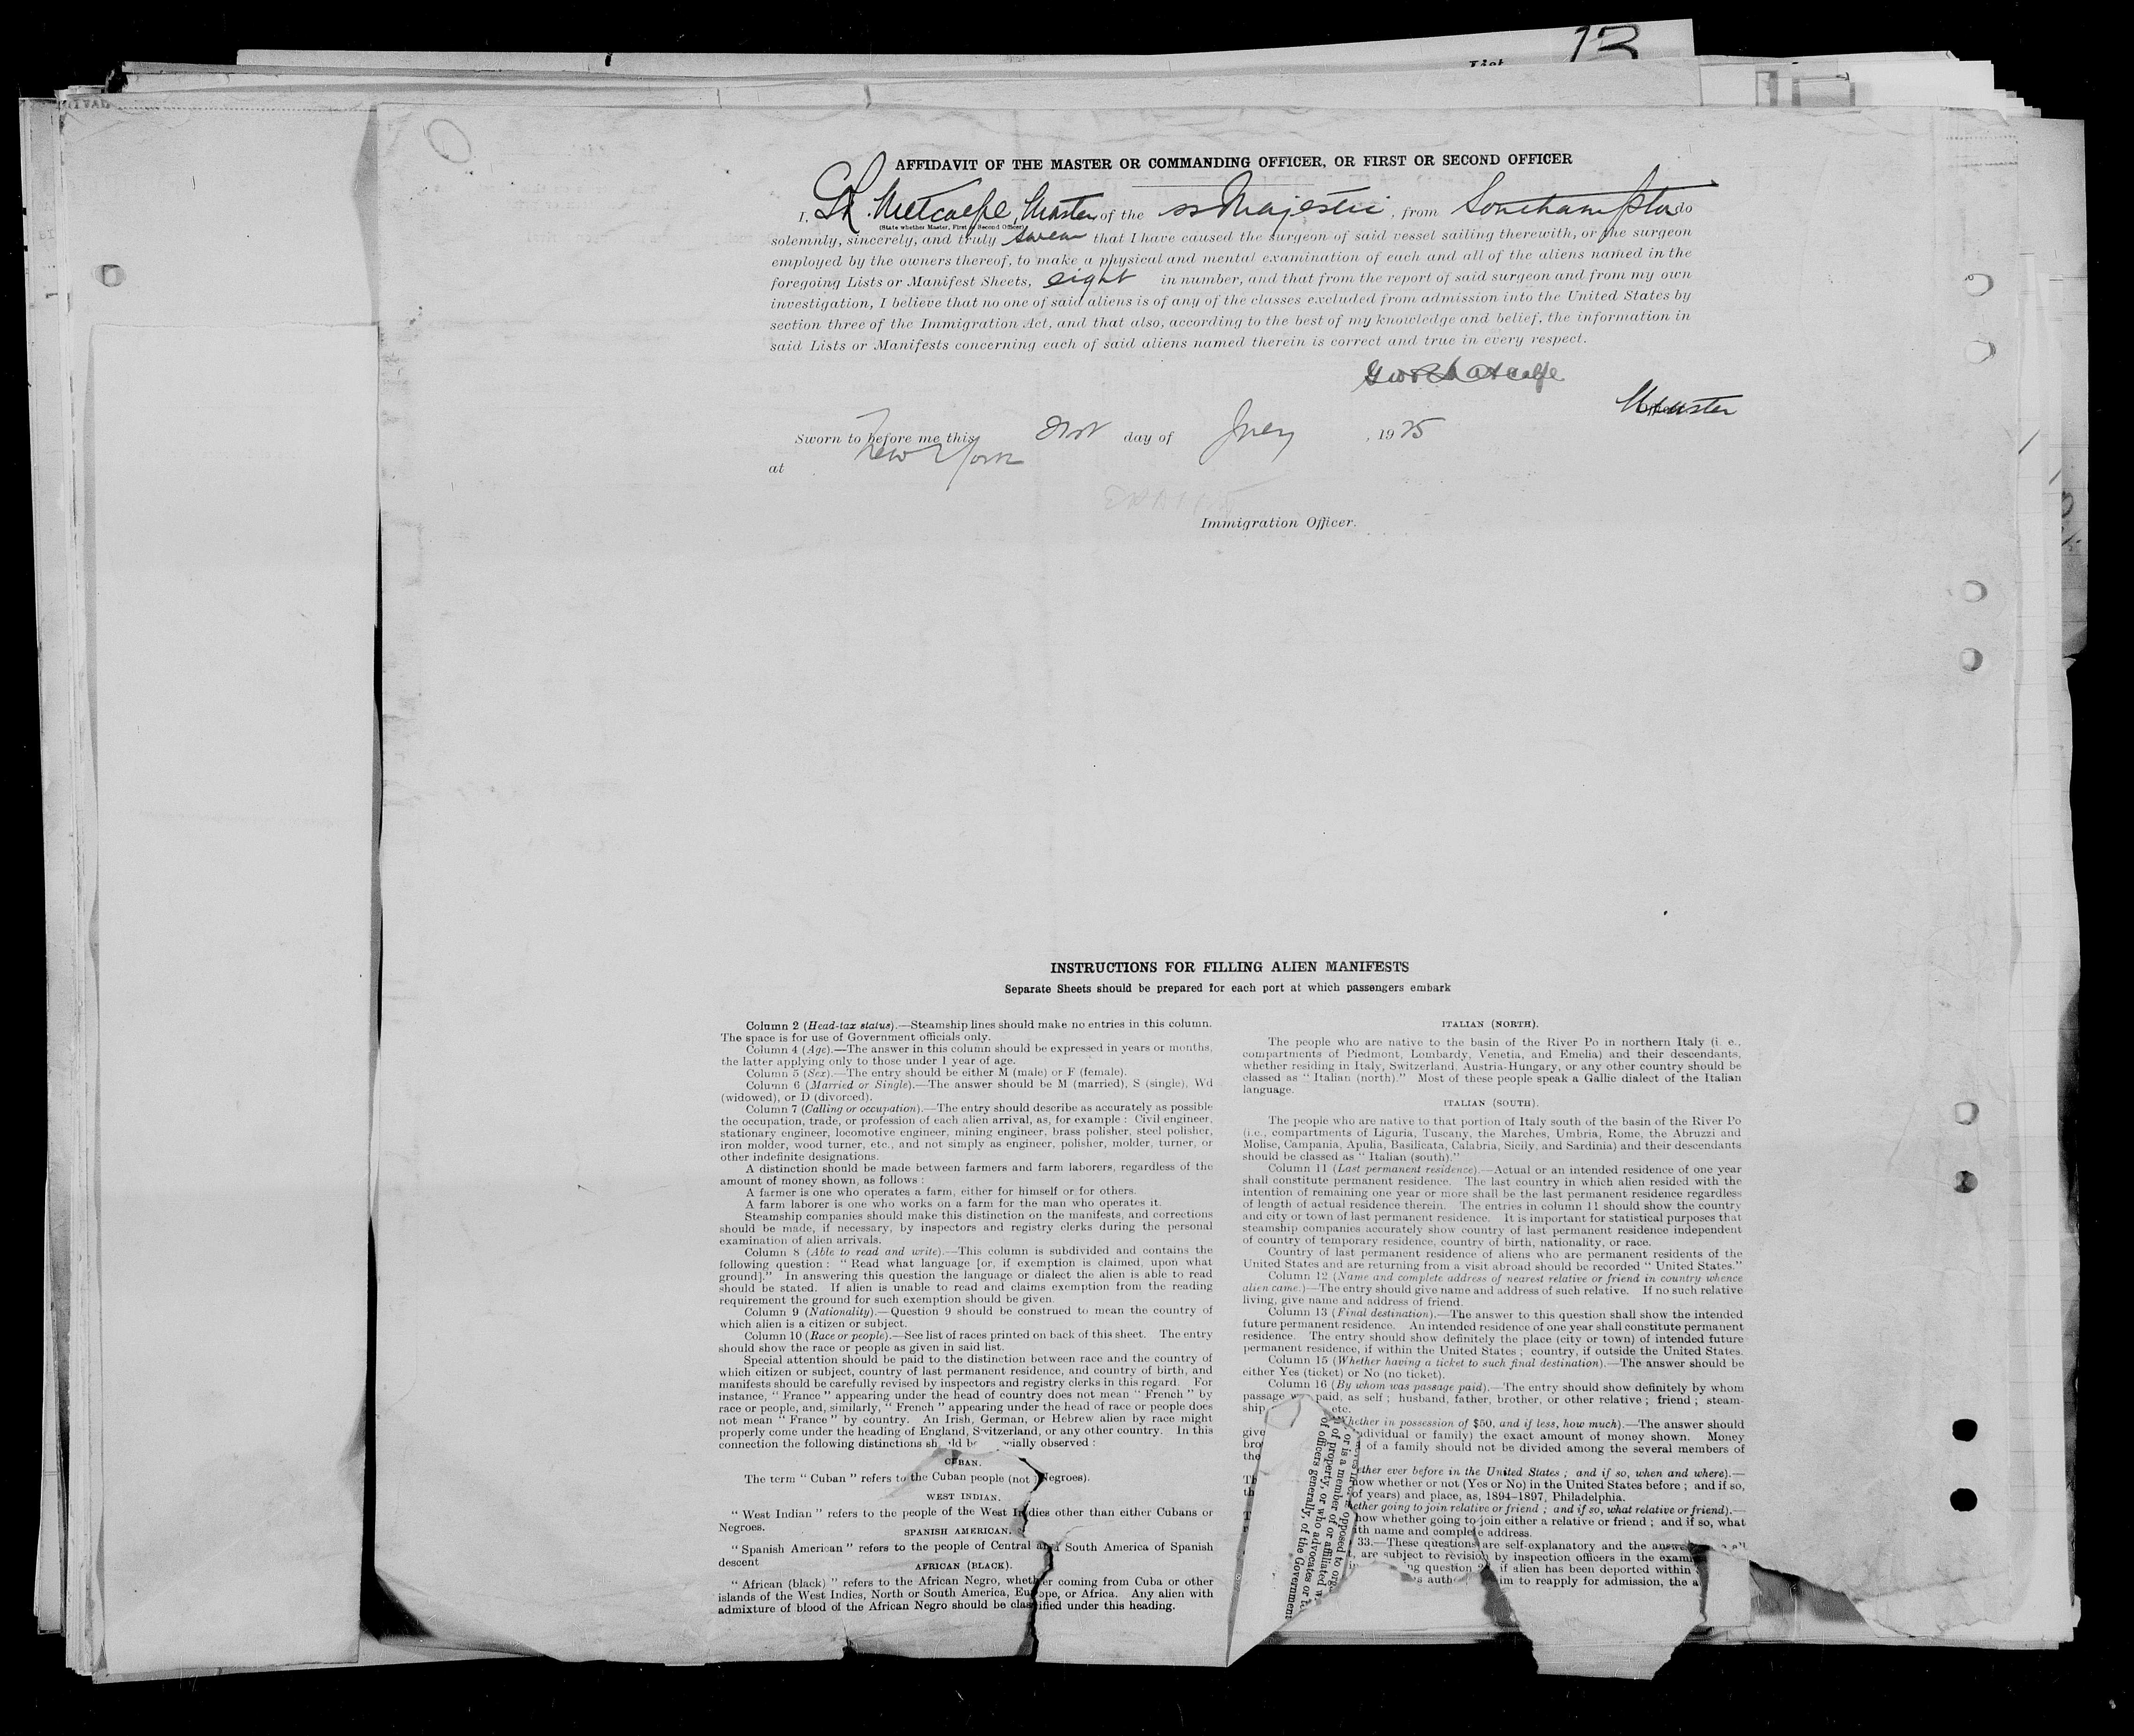 13
List
AFFIDAVIT OF THE MASTER OR COMMANDING OFFICER, OR FIRST OR SECOND OFFICER
I, GR. Metcalfe, Master of the ss Majestic, from Southampton do
(State whether Master, First or Second Officer)
solemnly, sincerely, and truly swear that I have caused the surgeon of said vessel sailing therewith, or the surgeon
employed by the owners thereof, to make a physical and mental examination of each and all of the aliens named in the
foregoing Lists or Manifest Sheets, eight in number, and that from the report of said surgeon and from my own
investigation, I believe that no one of said aliens is of any of the classes excluded from admission into the United States by
section three of the Immigration Act, and that also, according to the best of my knowledge and belief, the information in
said Lists or Manifests concerning each of said aliens named therein is correct and true in every respect.
Geo R Metcalfe
Master
Sworn to before me this day of July, 1925
at New York
Immigration Officer.
INSTRUCTIONS FOR FILLING ALIEN MANIFESTS
Separate Sheets should be prepared for each port at which passengers embark
Column 2 (Head-tax status).—Steamship lines should make no entries in this column.
The space is for use of Government officials only.
Column 4 (Age).—The answer in this column should be expressed in years or months,
the latter applying only to those under 1 year of age.
Column 5 (Sex).—The entry should be either M (male) or F (female).
Column 6 (Married or Single).—The answer should be M (married), S (single), Wd
(widowed), or D (divorced).
Column 7 (Calling or occupation).—The entry should describe as accurately as possible
the occupation, trade, or profession of each alien arrival, as, for example : Civil engineer,
stationary engineer, locomotive engineer, mining engineer, brass polisher, steel polisher,
iron molder, wood turner, etc., and not simply as engineer, polisher, molder, turner, or
other indefinite designations.
A distinction should be made between farmers and farm laborers, regardless of the
amount of money shown, as follows :
A farmer is one who operates a farm, either for himself or for others.
A farm laborer is one who works on a farm for the man who operates it.
Steamship companies should make this distinction on the manifests, and corrections
should be made, if necessary, by inspectors and registry clerks during the personal
examination of alien arrivals.
Column 8 (Able to read and write).—This column is subdivided and contains the
following question : " Read what language [or, if exemption is claimed, upon what
ground]." In answering this question the language or dialect the alien is able to read
should be stated. If alien is unable to read and claims exemption from the reading
requirement the ground for such exemption should be given.
Column 9 (Nationality).—Question 9 should be construed to mean the country of
which alien is a citizen or subject.
Column 10 (Race or people).—See list of races printed on back of this sheet. The entry
should show the race or people as given in said list.
Special attention should be paid to the distinction between race and the country of
which citizen or subject, country of last permanent residence, and country of birth, and
manifests should be carefully revised by inspectors and registry clerks in this regard. For
instance, " France " appearing under the head of country does not mean " French " by
race or people, and, similarly, " French " appearing under the head of race or people does
not mean " France " by country. An Irish, German, or Hebrew alien by race might
properly come under the heading of England, Switzerland, or any other country. In this
connection the following distinctions sh ld be cially observed :
CUBAN.
The term " Cuban " refers to the Cuban people (not Negroes).
WEST INDIAN.
" West Indian " refers to the people of the West Indies other than either Cubans or
Negroes.
SPANISH AMERICAN.
" Spanish American " refers to the people of Central and South America of Spanish
descent
AFRICAN (BLACK).
" African (black) " refers to the African Negro, whether coming from Cuba or other
islands of the West Indies, North or South America, Europe, or Africa. Any alien with
admixture of blood of the African Negro should be classified under this heading.
ITALIAN (NORTH).
The people who are native to the basin of the River Po in northern Italy (i. e.,
compartments of Piedmont, Lombardy, Venetia, and Emelia) and their descendants,
whether residing in Italy, Switzerland, Austria-Hungary, or any other country should be
classed as " Italian (north)." Most of these people speak a Gallic dialect of the Italian
language.
ITALIAN (SOUTH).
The people who are native to that portion of Italy south of the basin of the River Po
(i.e., compartments of Liguria, Tuscany, the Marches, Umbria, Rome, the Abruzzi and
Molise, Campania, Apulia, Basilicata, Calabria, Sicily, and Sardinia) and their descendants
should be classed as " Italian (south)."
Column 11 (Last permanent residence).—Actual or an intended residence of one year
shall constitute permanent residence. The last country in which alien resided with the
intention of remaining one year or more shall be the last permanent residence regardless
of length of actual residence therein. The entries in column 11 should show the country
and city or town of last permanent residence. It is important for statistical purposes that
steamship companies accurately show country of last permanent residence independent
of country of temporary residence, country of birth, nationality, or race.
Country of last permanent residence of aliens who are permanent residents of the
United States and are returning from a visit abroad should be recorded " United States."
Column 12 (Name and complete address of nearest relative or friend in country whence
alien came.)—The entry should give name and address of such relative. If no such relative
living, give name and address of friend.
Column 13 (Final destination).—The answer to this question shall show the intended
future permanent residence. An intended residence of one year shall constitute permanent
residence. The entry should show definitely the place (city or town) of intended future
permanent residence, if within the United States ; country, if outside the United States.
Column 15 (Whether having a ticket to such final destination).—The answer should be
either Yes (ticket) or No (no ticket).
Column 16 (By whom was passage paid).—The entry should show definitely by whom
passage w paid, as self ; husband, father, brother, or other relative ; friend ; steam-
ship, etc.
Whether in possession of $50, and if less, how much).—The answer should
give dividual or family) the exact amount of money shown. Money
bro of a family should not be divided among the several members of
the
ether ever before in the United States ; and if so, when and where).—
Th how whether or not (Yes or No) in the United States before ; and if so,
th of years) and place, as, 1894–1897, Philadelphia.
ether going to join relative or friend ; and if so, what relative or friend).—
how whether going to join either a relative or friend ; and if so, what
ith name and complete address.
33.—These questions are self-explanatory and the answe
, are subject to revision by inspection officers in the exami
ng question if alien has been deported within
s auth im to reapply for admission, the a
opposed to orga
or is a member of or affiliated w
of property, or who advocates or t
of officers generally, of the Government